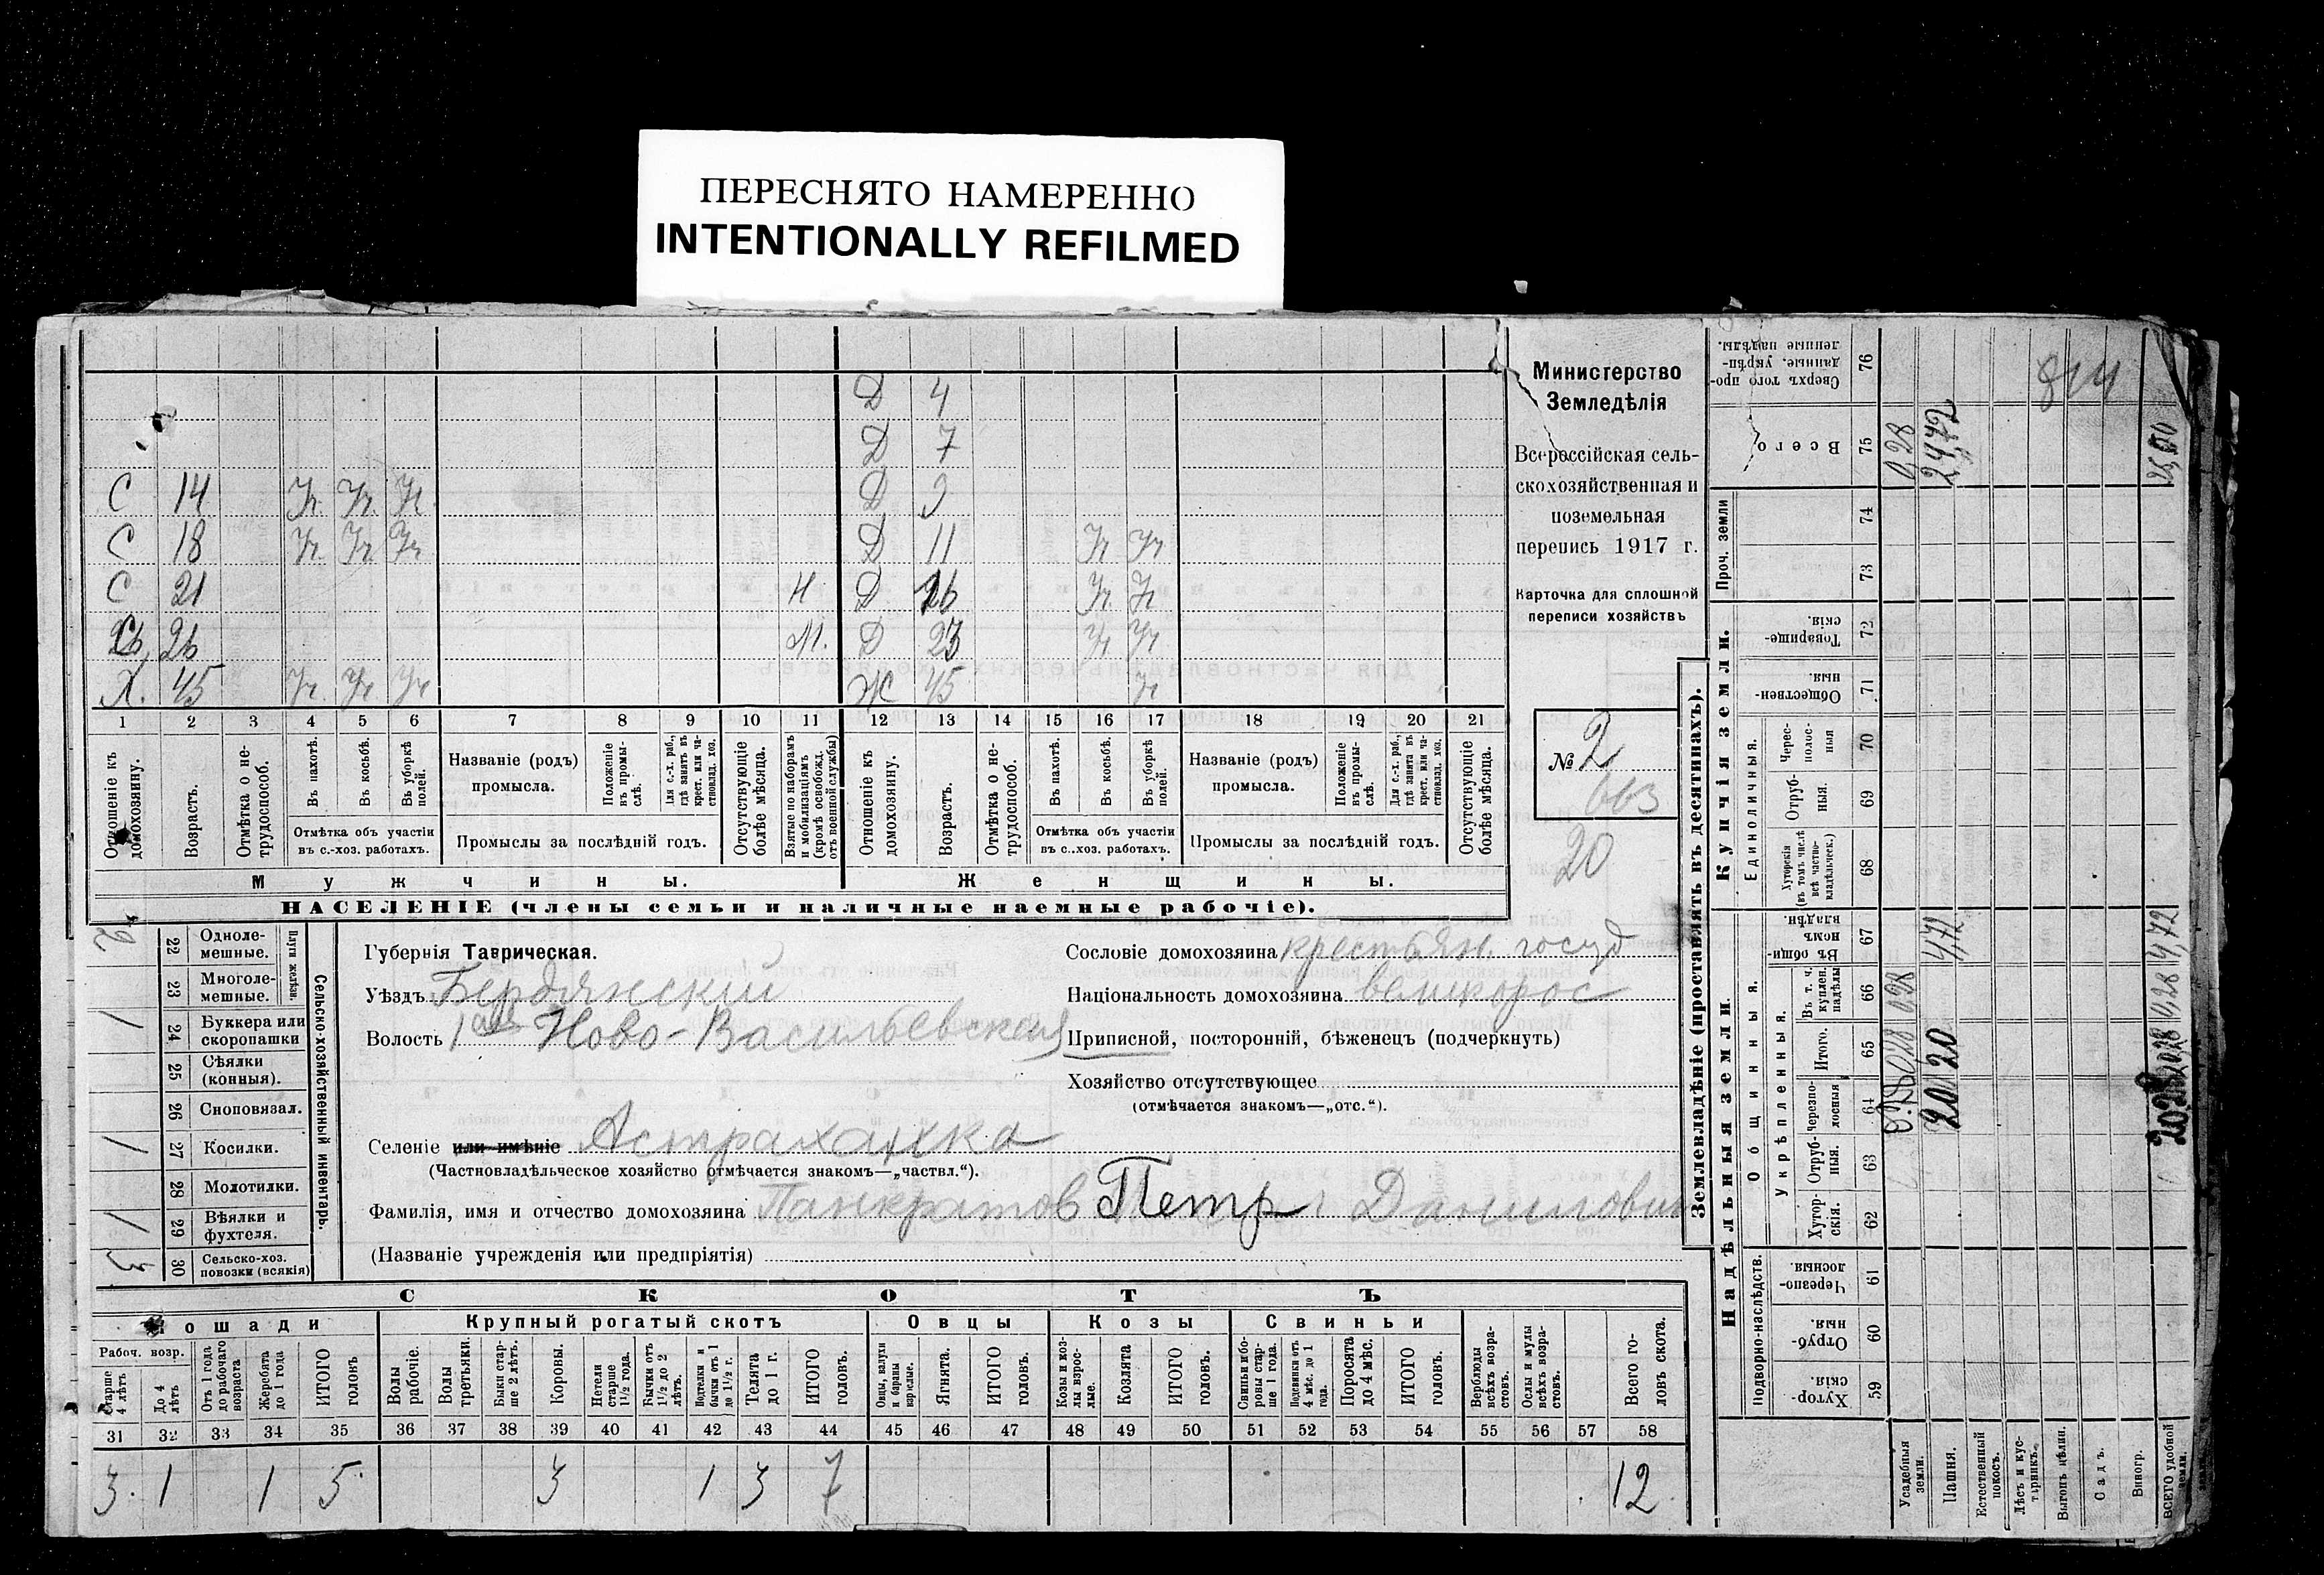 ПЕРЕСНЯТО НАМЕРЕННО
INTENTIONALLY REFILMED
Д 4
Д 7
С 14 Уч. Уч. Уч. Д 9
С 18 Уч. Уч. Уч Д 11 Уч Уч
С 21 Н Д 16 Уч. Уч
26 М. Д 23 Уч Уч
Х. 45 Уч. Уч Уч Ж 45 Уч
1 2 3 4 5 6 7 8 9 10 11 12 13 14 15 16 17 18 19 20 21
Отношеніе къ домохозяину.
Возрастъ.
Отмѣтка о нетрудоспособ.
Въ пахотѣ.
Въ косьбѣ.
Въ уборкѣ полей.
Отмѣтка объ участіи въ с.-хоз. работахъ.
Названіе (родъ) промысла.
Положеніе въ промыслѣ.
Для с.-х. раб., гдѣ занятъ въ крест. или частновлад. хоз.
Промыслы за послѣдній годъ.
Отсутствующіе болѣе мѣсяца.
Взятые по наборамъ и мобилизаціямъ (кромѣ освобожд. отъ военной службы)
Отношеніе къ домохозяину.
Возрастъ.
Отмѣтка о нетрудоспособ.
Въ пахотѣ.
Въ косьбѣ.
Въ уборкѣ полей.
Отмѣтка объ участіи въ с.-хоз. работахъ.
Названіе (родъ) промысла.
Положеніе въ промыслѣ.
Для с.-х. раб., гдѣ занята въ крест. или частновлад. хоз.
Промыслы за послѣдній годъ.
Отсутствующіе болѣе мѣсяца.
Мужчины.
Женщины.
НАСЕЛЕНІЕ (члены семьи и наличные наемные рабочіе).
Министерство
Земледѣлія
Всероссійская сель-
скохозяйственная и
поземельная
перепись 1917 г.
Карточка для сплошной
переписи хозяйствъ
№ 2
663
20
Сельско-хозяйственный инвентарь.
Плуги желѣзн.
2 22 Однолемешные.
23 Многолемешные.
1 24 Буккера или скоропашки
25 Сѣялки (конныя).
26 Сноповязал.
1 27 Косилки.
28 Молотилки.
1 29 Вѣялки и фухтеля.
3 30 Сельско-хоз. повозки (всякія)
Губернія Таврическая.
Уѣздъ Бердянскій
Волость 1ая Ново-Васильевская
Сословіе домохозяина крестьян. госуд
Національность домохозяина великорос
Приписной, посторонній, бѣженецъ (подчеркнуть)
Хозяйство отсутствующее
(отмѣчается знакомъ—„отс.“).
Селеніе или имѣніе Астраханка
(Частновладѣльческое хозяйство отмѣчается знакомъ—„частвл.“).
Фамилія, имя и отчество домохозяина Панкратов Петр Данилович
(Названіе учрежденія или предпріятія)
СКОТЪ
Лошади
Крупный рогатый скотъ
Овцы
Козы
Свиньи
Рабоч. возр.
Старше 4 лѣтъ
До 4 лѣтъ
Отъ 1 года до рабочаго возраста
Жеребята до 1 года
ИТОГО головъ
Волы рабочіе.
Волы третьяки.
Быки старше 2 лѣтъ.
Коровы.
Нетели старше 1½ года.
Бычки отъ 1½ до 2 лѣтъ.
Подтелки и бычки отъ 1 до 1½ г.
Телята до 1 г.
ИТОГО головъ.
Овцы, валухи и бараны взрослые.
Ягнята.
ИТОГО головъ.
Козы и козлы взрослые.
Козлята
ИТОГО головъ.
Свиньи и боровы старше 1 года.
Подсвинки отъ 4 мѣс. до 1 года.
Поросята до 4 мѣс.
ИТОГО головъ.
Верблюды всѣхъ возрастовъ.
Ослы и мулы всѣхъ возрастовъ.
Всего головъ скота.
31 32 33 34 35 36 37 38 39 40 41 42 43 44 45 46 47 48 49 50 51 52 53 54 55 56 57 58
3. 1 1 5 3 1 3 7 12
Землевладѣніе (проставлять въ десятинахъ).
Надѣльныя земли.
Купчія земли.
Проч. земли
Подворно-наслѣдств.
Общинныя.
Укрѣпленныя.
Единоличныя.
Хуторскія. 59
Отрубныя. 60
Черезполосныя. 61
Хуторскія. 62
Отрубныя. 63
Черезполосныя 64
Итого. 65
Въ т. ч. куплен. надѣлы 66
Въ общинномъ владѣн. 67
Хуторскія (въ томъ числѣ всѣ частновладѣльческ.) 68
Отрубныя. 69
Чересполосныя 70
Общественныя. 71
Товарищескія. 72
73
74
Всего 75
Сверхъ того проданные. укрѣпленные надѣлы. 76
Усадебныя земли. 0,28 0,28 0,28
Пашня. 20 20 4,72 24,72
Естественный покосъ.
Лѣсъ и кустарникъ.
Выгонъ цѣлин. 814
Садъ.
Виногр.
ВСЕГО удобной земли. 20,28 0,28 4,72 25,00